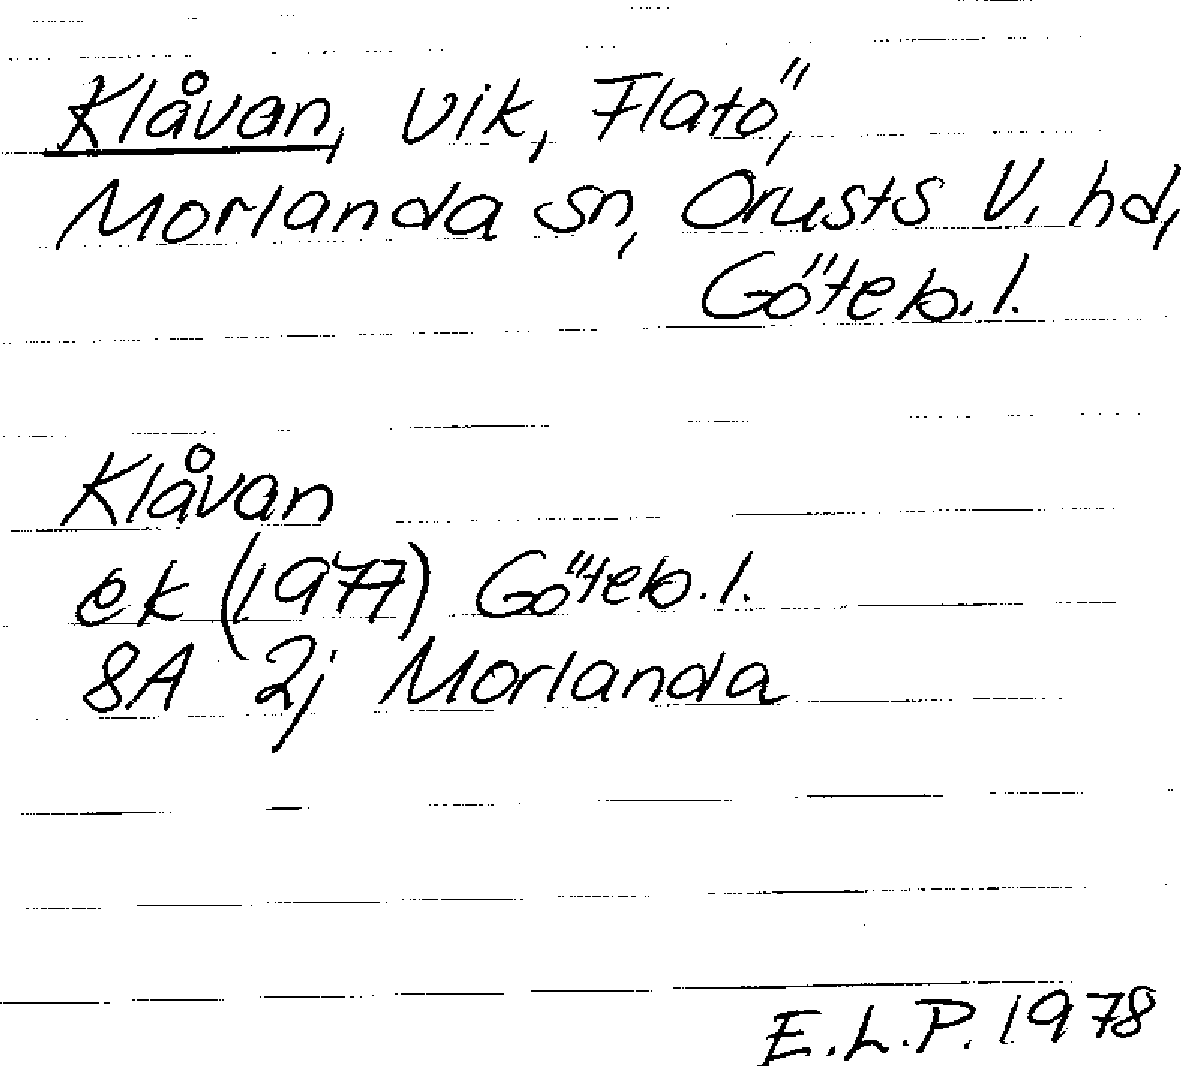 Klåvan, vik, Flatö,
Morlanda sn, Orusts V. hd,
Göteb. l.
Klåvan
ek (1977) Göteb. l.
8A 2j Morlanda
E.L.P. 1978